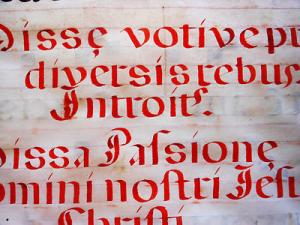 Missę votive pr
diversis rebus
Introit9.
Missa Paſsionę
omini noſtri Jeſu
Chriſti